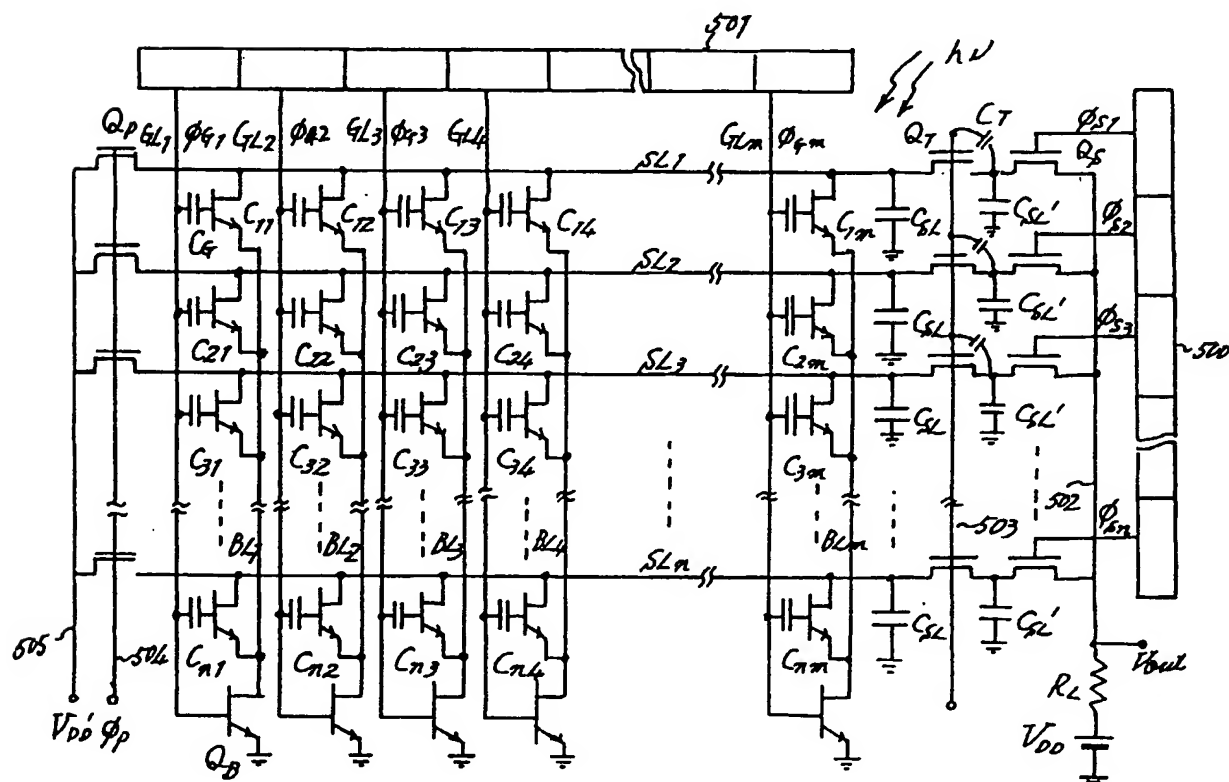 501
hν
QP GL1 φG1 GL2 φG2 GL3 φG3 GL4 GLm φGm QT CT φS1
SL1 QS
CG C11 C12 C13 C14 C1m CSL CSL' φS2
SL2
C21 C22 C23 C24 C2m CSL CSL' φS3 500
SL3
C31 C32 C33 C34 C3m CSL CSL'
502
BL1 BL2 BL3 BL4 BLm 503 φSn
SLn
505 504 Cn1 Cn2 Cn3 Cn4 Cnm CSL CSL' Vout
RL
VDD' φP QB VDD